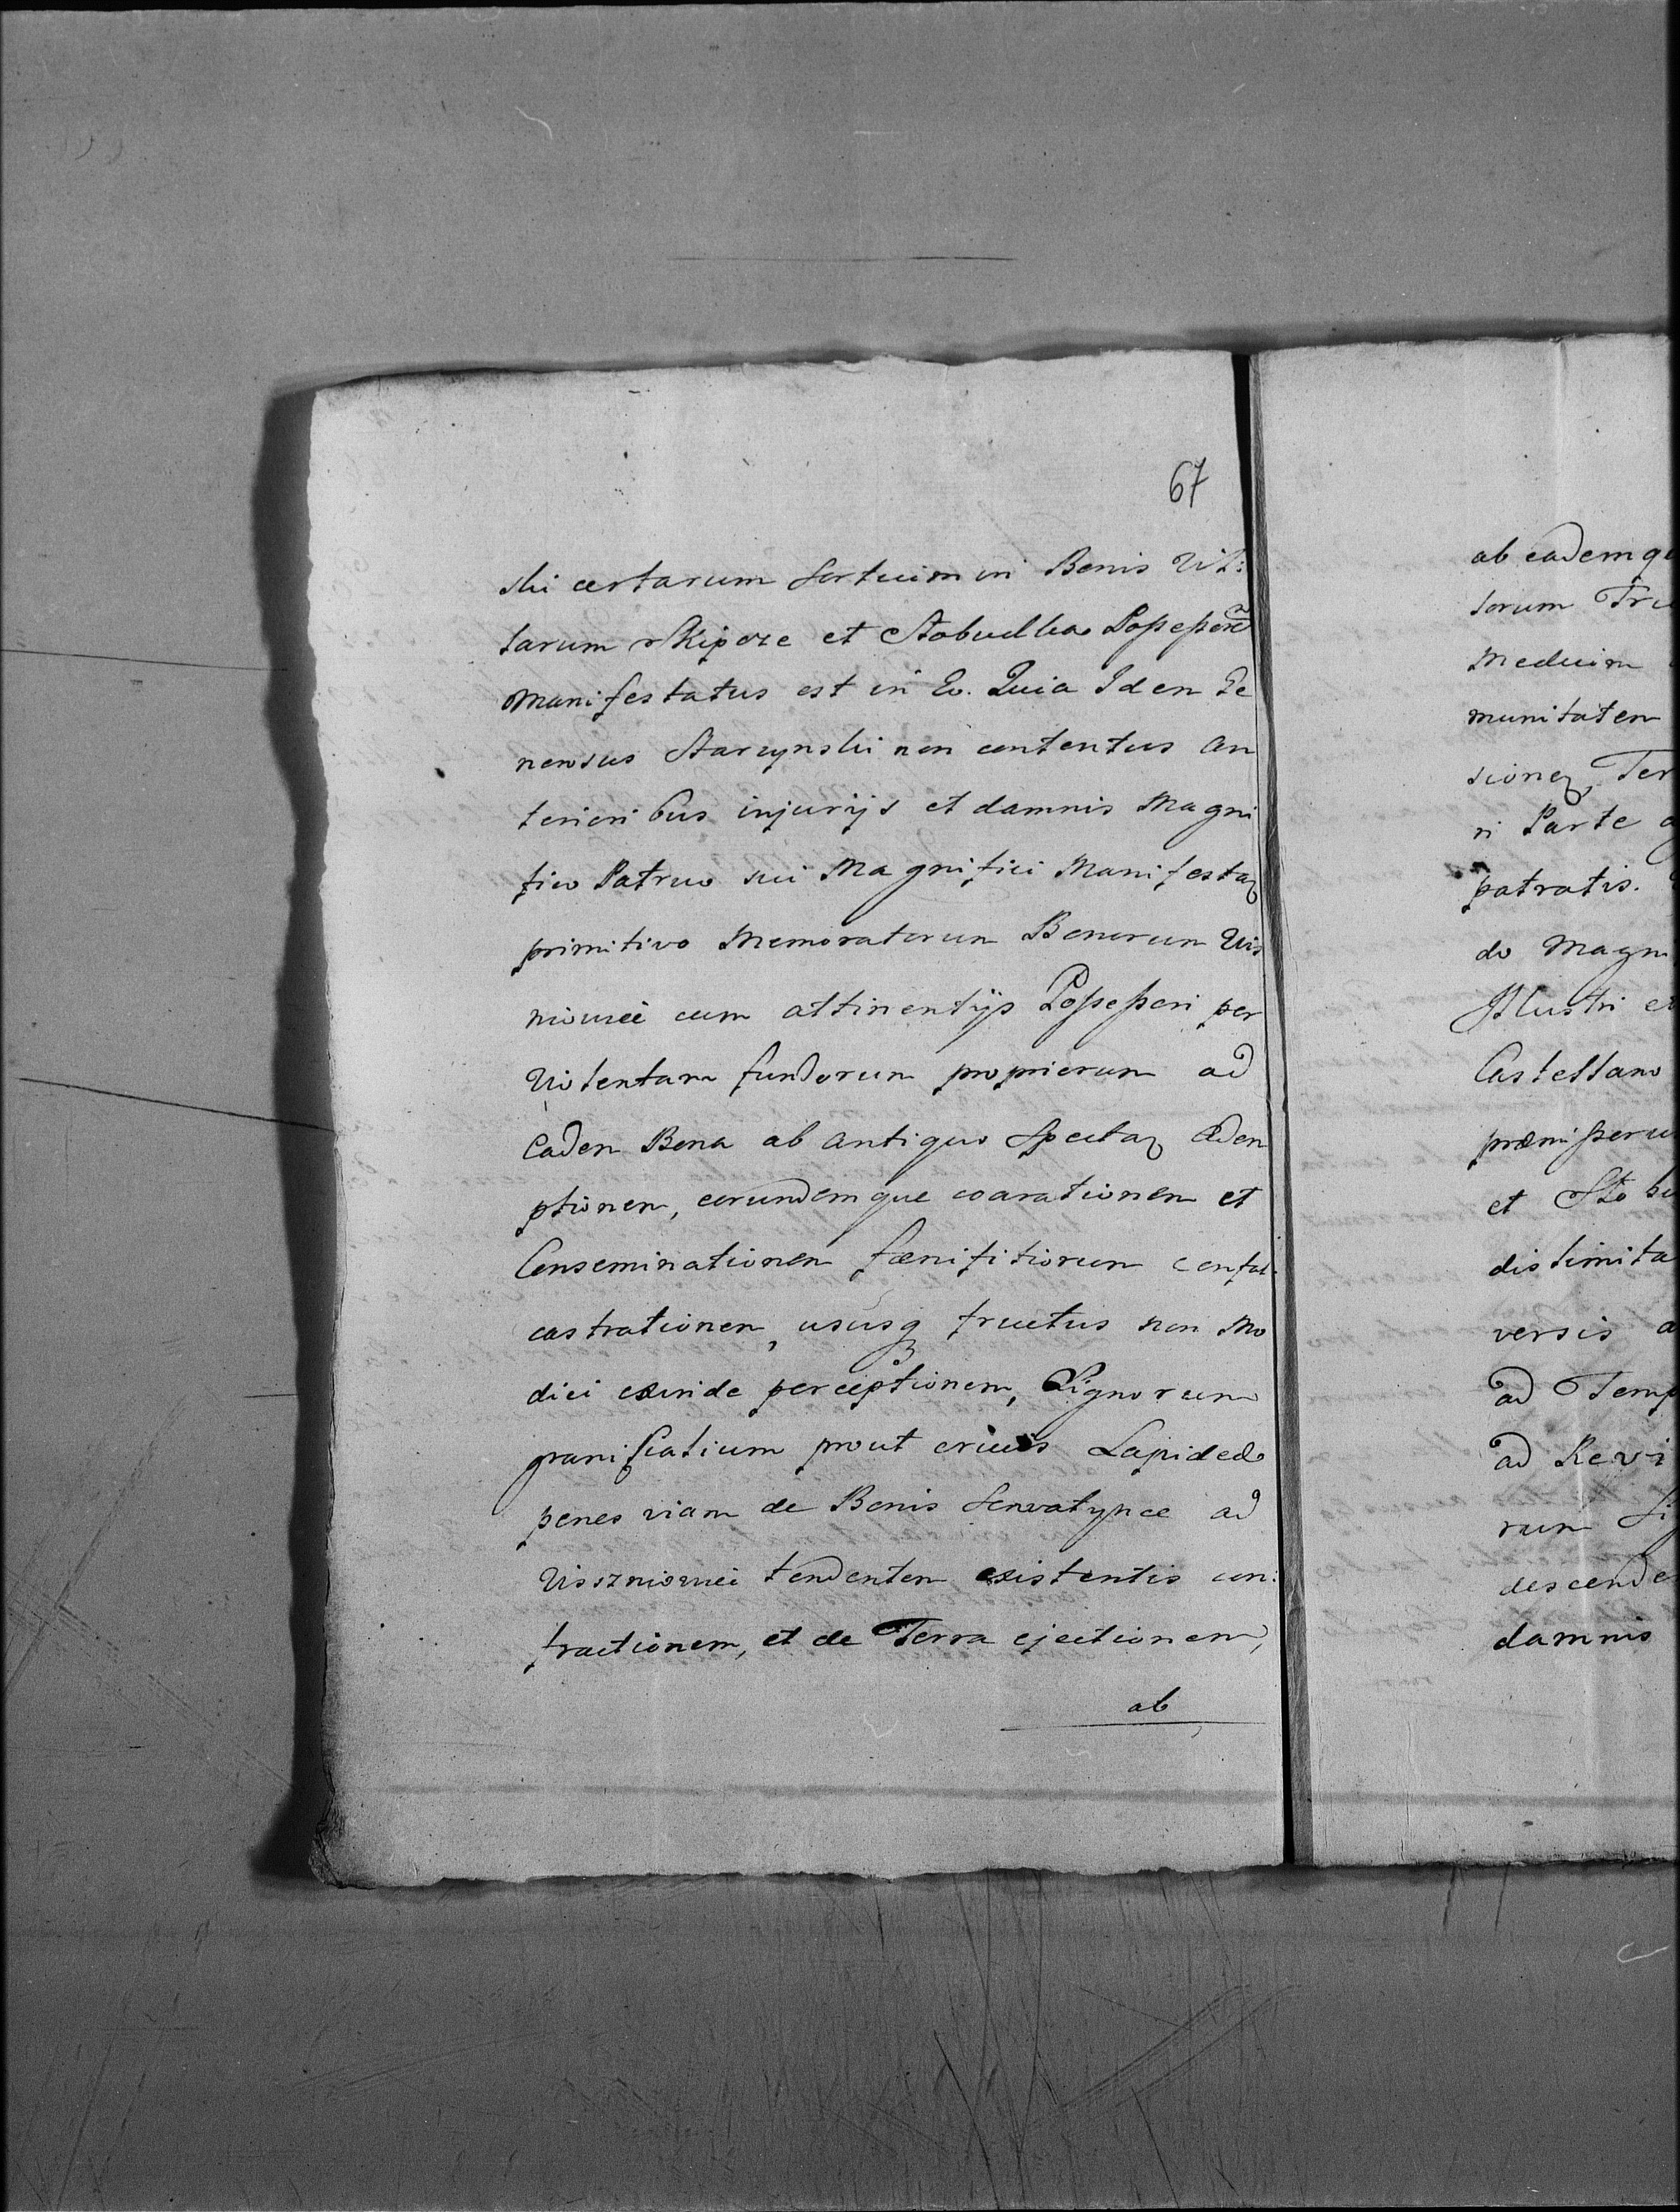 67
ski certarum Sortium in Bonis Vil:
larum Skipcze et Stobudka Possessorẽ
Manifestatus est in Eo. Quia Idem Ge
nerosus Starzynski non contentus an
terioribus injurijs et damnis Magni
fico Patruo sui Magnifici Manifestaꝫ
primitivo Memoratorum Bonorum Wis
niowiec cum attinentijs Possessori per
Violentam fundorum propriorum ad
Eadem Bona ab antiquo Spectaꝫ Adem
ptionem, eorundemque coarationem et
Conseminationem fœnificiorum confal:
castrationem, ususqꝫ fructus non Mo
dici exinde perceptionem, Lignorum
granicialium prout crucis Lapideo
penes viam de Bonis Serwatynce ad
Viszniowiec tendentem existentis con:
fractionem, et de Terra ejectionem,
ab
ab eademq
torum Tri
Medium
munitatem
sioneꝫ, Ter
ri Parte
patratis.
do Magn
Illustri e
Castellano
præmisseru
et Sto bu
dislimita
versis a
ad Temp
ad Revi
rum Si
descende
damnis